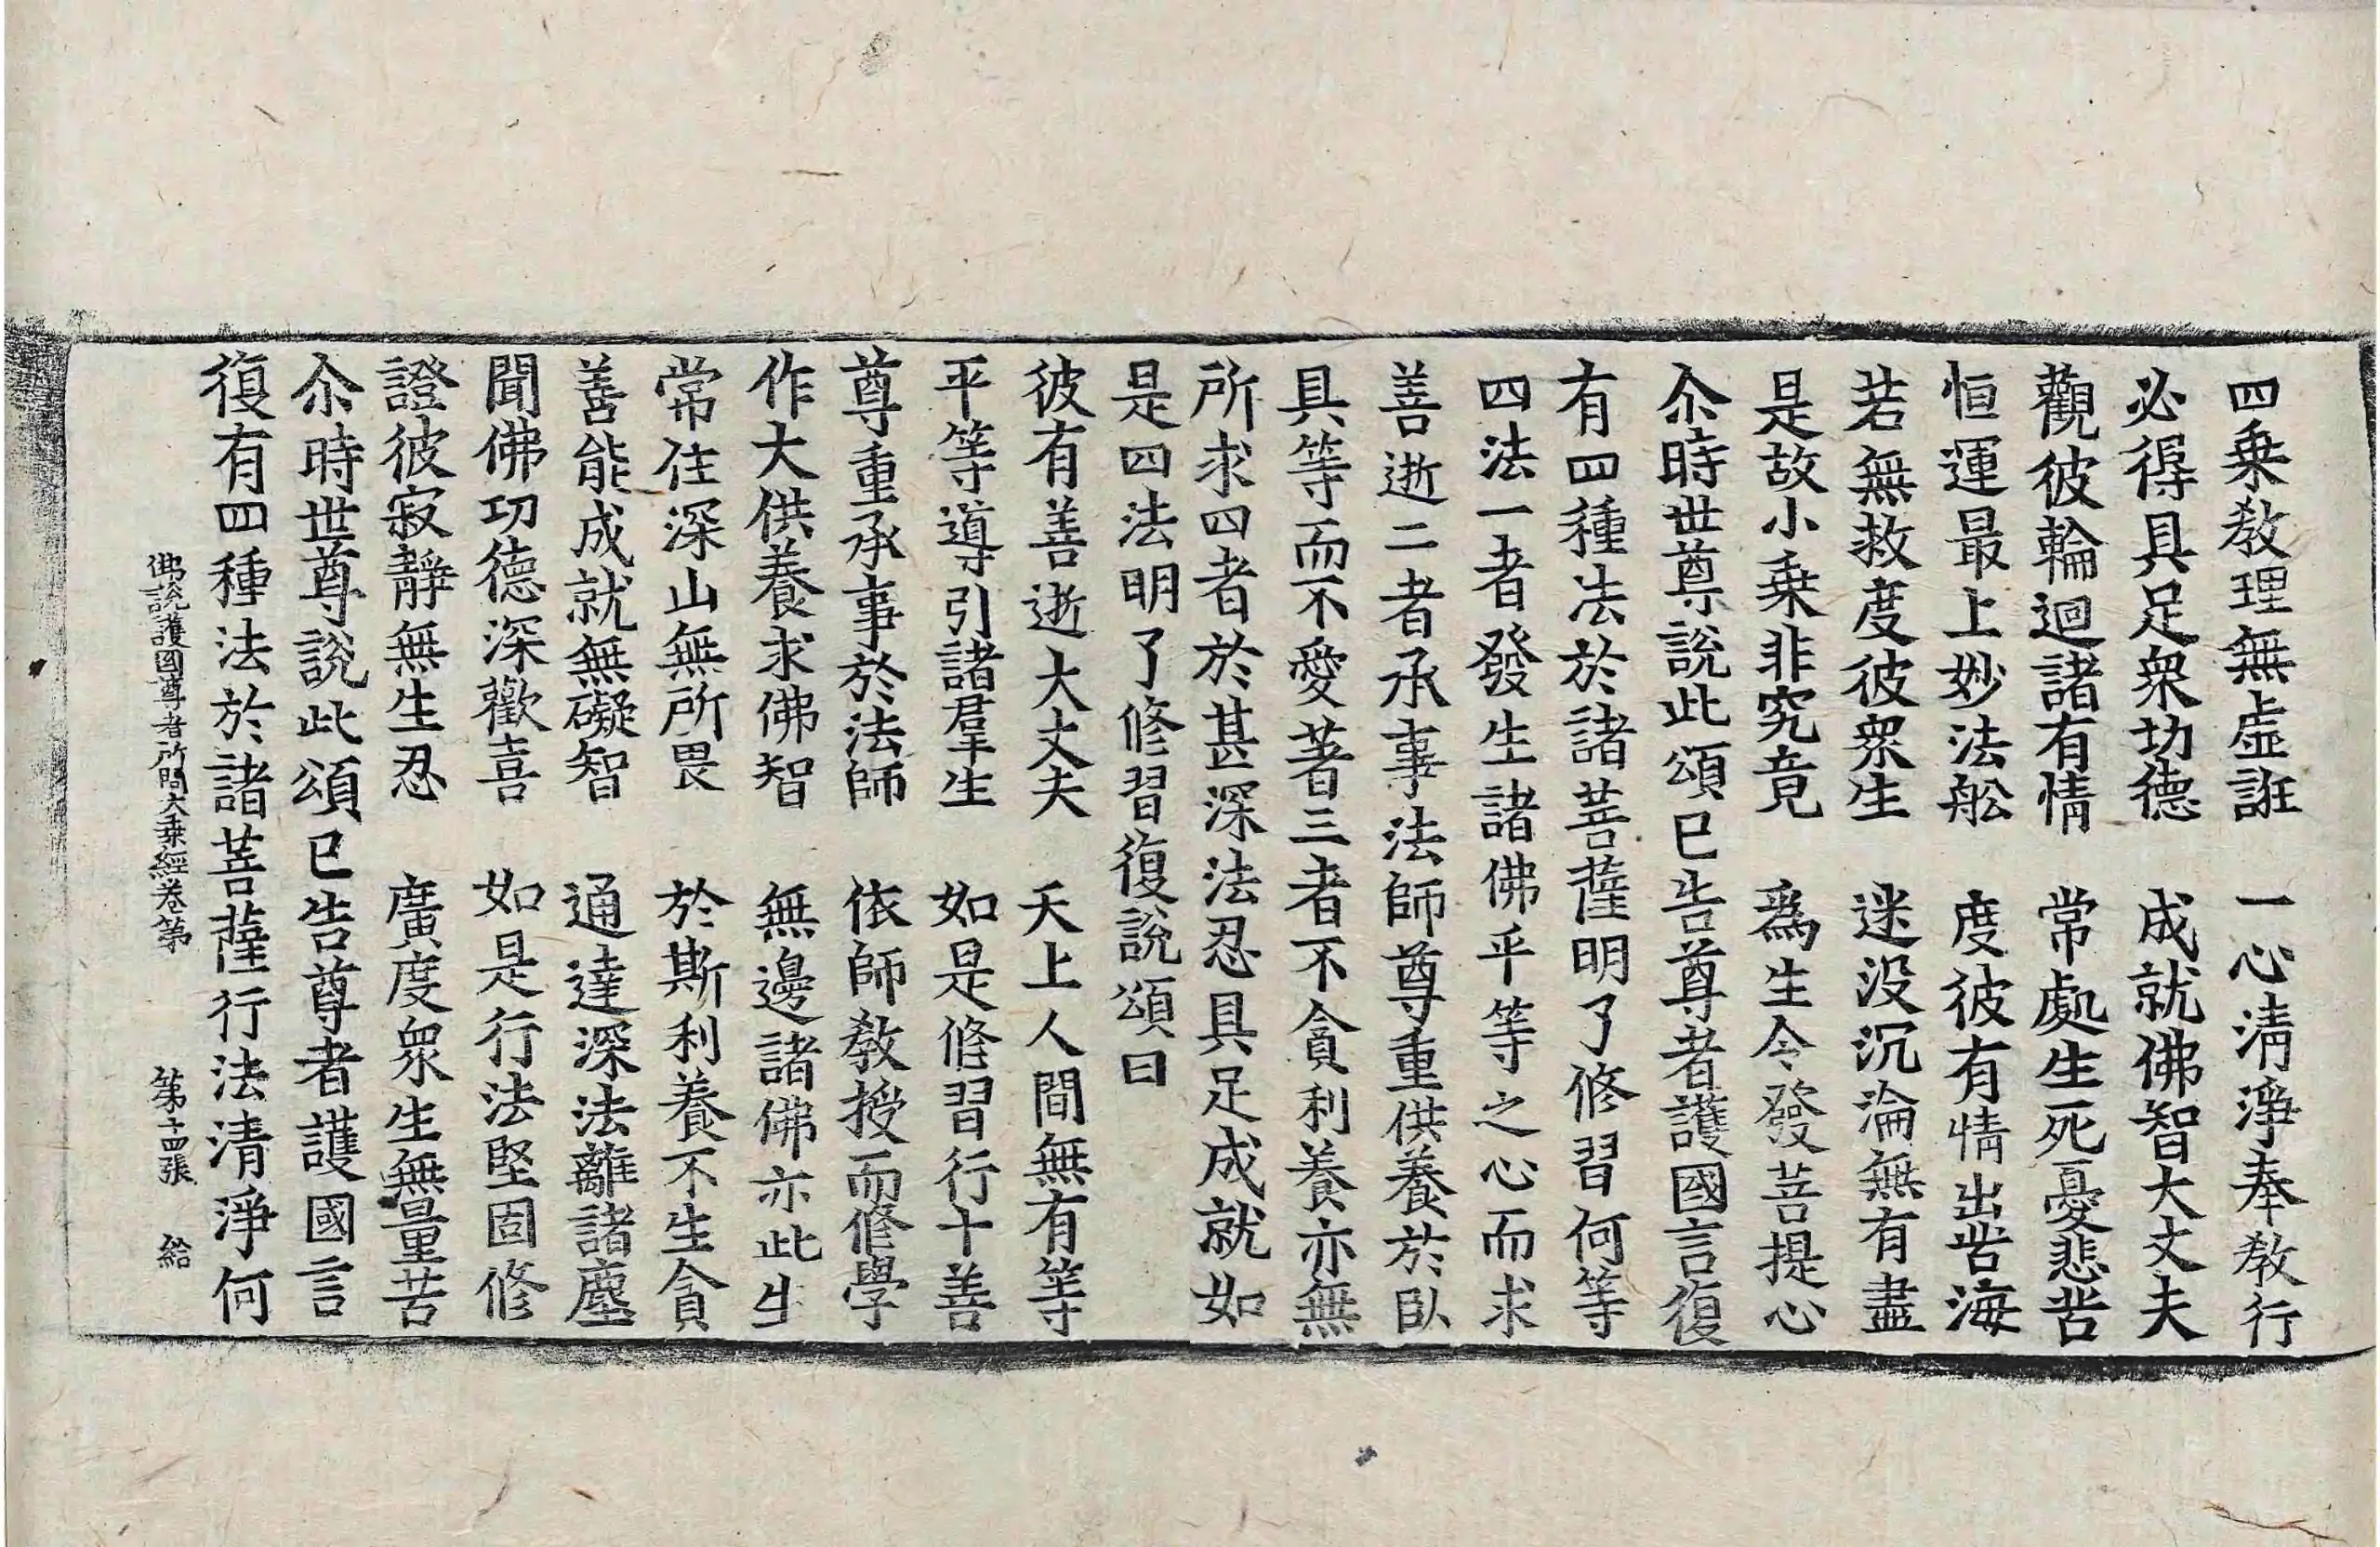 四乗教理無虛誑　一心淸淨奉教行
必得具足衆功德　成就佛智大丈夫
觀彼輪迴諸有情　常處生死憂悲苦
恒運最上妙法舩　度彼有情出苦海
若無救度彼衆生　迷没沉淪無有盡
是故小乗非究竟　爲生令發菩提心
尒時世尊說此頌已告尊者護國言復
有四種法於諸菩薩明了修習何等
四法一者發生諸佛平等之心而求
善逝二者承事法師尊重供養於臥
具等而不愛著三者不貪利養亦無
所求四者於甚深法忍具足成就如
是四法明了修習復說頌曰
彼有善逝大丈夫　天上人間無有等
平等導引諸羣生　如是修習行十善
尊重承事於法師　依師教授而修學
作大供養求佛智　無邊諸佛亦此生
常住深山無所畏　於斯利養不生貪
善能成就無礙智　通達深法離諸塵
聞佛功德深歡喜　如是行法堅固修
證彼寂靜無生忍　廣度衆生無量苦
尒時世尊說此頌已告尊者護國言
復有四種法於諸菩薩行法清淨何
佛說護國尊者所問大乗經卷第　第十四張　給